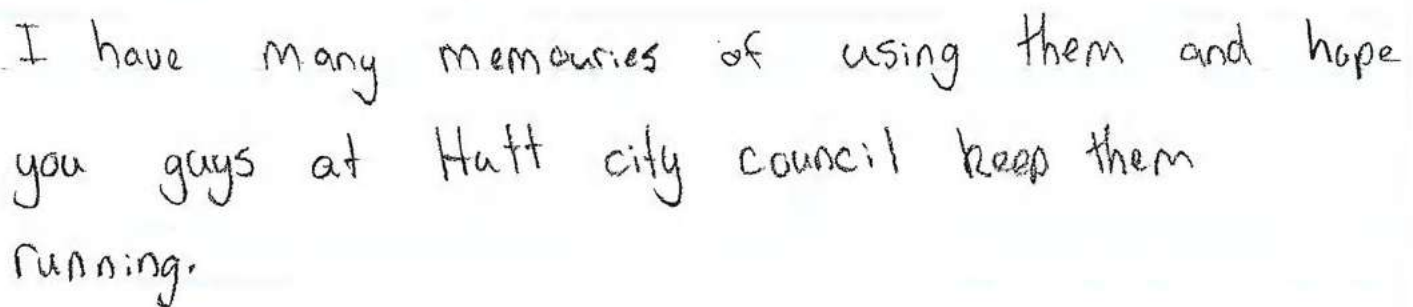 I have many memouries of using them and hope
you guys at Hutt city council keep them
running.